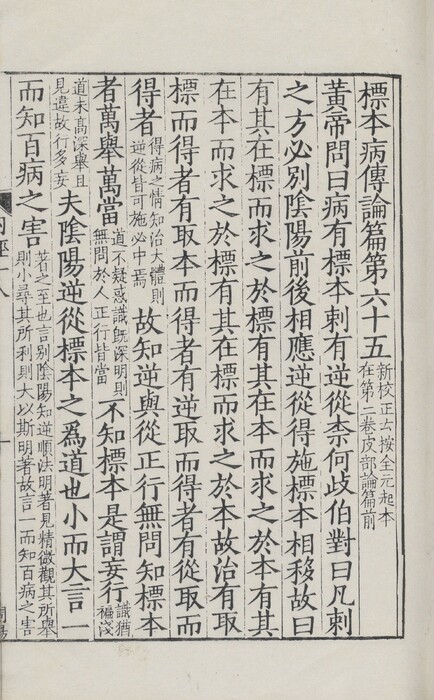 標本病傳論篇第六十五 新校正云按全元起本在第二卷皮部論篇前
黃帝問曰病有標本刺有逆從柰何歧伯對曰凡刺
之方必別陰陽前後相應逆從得施標本相移故曰
有其在標而求之於標有其在本而求之於本有其
在本而求之於標有其在標而求之於本故治有取
標而得者有取本而得者有逆取而得者有從取而
得者 得病之情知治大體則逆從皆可施必中焉 故知逆與從正行無問知標本
者萬舉萬當 道不疑惑識旣深明則無問於人正行皆當 不知標本是謂妄行 識猶褊淺
道未高深舉且見違故行多妄 夫陰陽逆從標本之爲道也小而大言一
而知百病之害 著之至也言別陰陽知逆順法明著見精微觀其所舉則小尋其所利則大以斯明著故言一而知百病之害